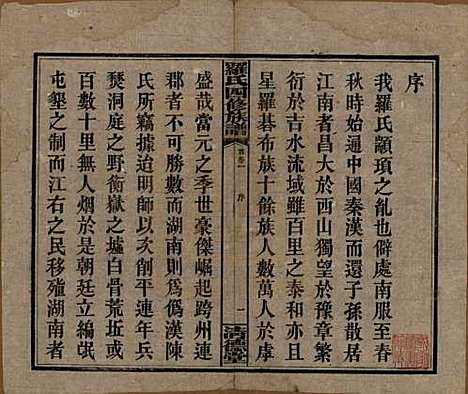 序
我羅氏顓頊之胤也僻處南服春
秋時始通中國秦漢而還子孫散居
江南者昌大於西山獨望於豫章繁
衍於吉水流域雖百里之泰和亦
星羅碁布族十餘族人數萬人於虖
羅氏四修族譜
卷首一
序
一
盛哉當元之季世豪傑崛起跨州連
郡者不可勝數而湖南則爲僞漢陳
氏所竊據迨明師以次削平連年兵
燹洞庭之野衡嶽之墟白骨荒坵或
百數十里無人烟於是朝廷立編氓
屯墾之制而江右之民移殖湖南者